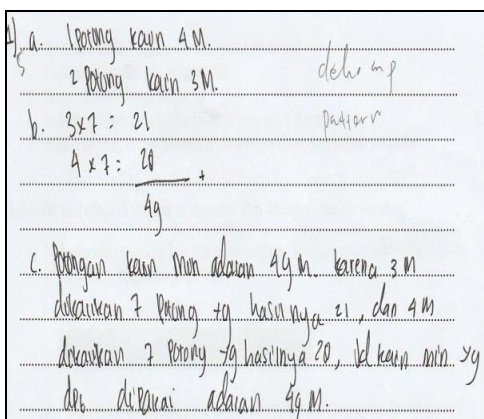 1) a. 1 potong kain 4 M.
2 potong kain 3 M.
b. 3x7 = 21
4 x 7 = 28 +
49
c. Potongan kain min adalah 49 M. karena 3 M
dikalikan 7 Potong yg hasilnya 21, dan 4 M
dikalikan 7 Potong yg hasilnya 28, jd kain min yg
dipakai adalah 49 M.
pattern